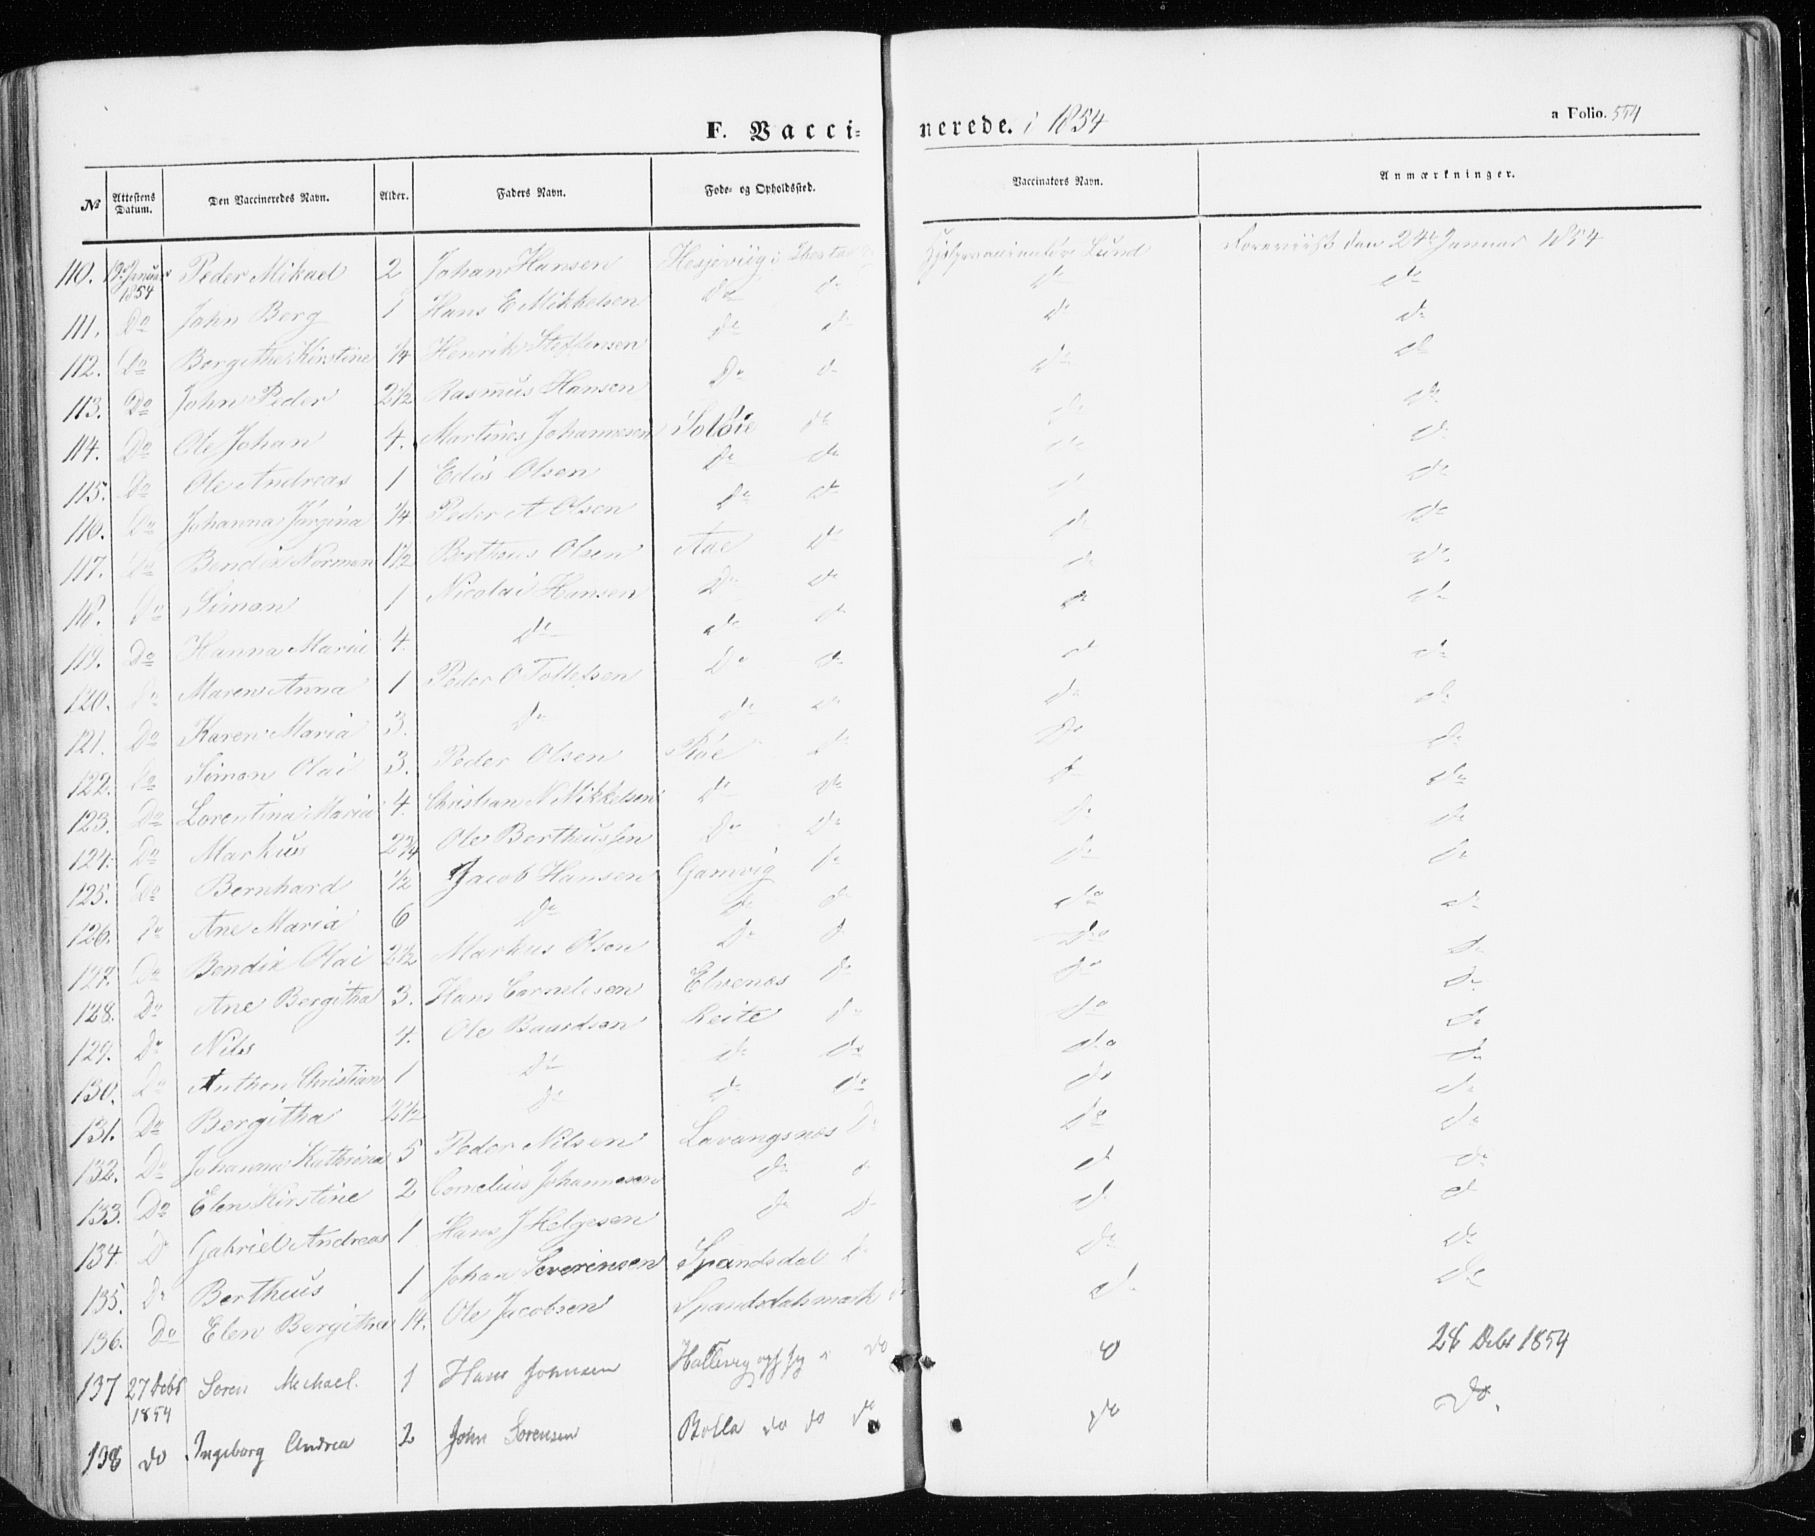 F. Vaccinerede. i 1854
a Folio. 554
No Attestens Datum. Den Vaccineredes Navn. Alder. Faders Navn. Føde- og Opholdssted. Vaccinators Navn. Anmærkninger.
110. 19de Januar 1854 Peder Mikael 2 Johan Hansen Hesjeviig i Lund den 24de Januar 1854
111. Do John Berg 1 Hans E Mikkelsen Do Do Do Do
112. Do Bergithe Kirstine 1/4 Henrik Steffensen Do Do Do Do
113. Do John Peder 2 1/2 Rasmus Hansen Do Do Do Do
114. Do Ole Johan 4. Martines Johannesen Soløie Do Do Do
115. Do Ole Andreas 1 Edis Olsen Do Do Do Do
116. Do Johanna Jørgina 1/4 Peder A Olsen Do Do Do Do
117. Do Bendix Norman 1 1/2 Bertheus Olsen Aae Do Do Do
118. Do Simon 1 Nicolai Hansen Do Do Do Do
119. Do Hanna Maria 4. Do Do Do Do Do
120. Do Maren Anna 1 Peder O Tollefsen Do Do Do Do
121. Do Karen Maria 3. Do Do Do Do Do
122. Do Simon Olai 3. Peder Olsen Røe Do Do Do
123. Do Lorentina Maria 4. Christian N Mikkelsen Do Do Do Do
124. Do Markus 2 3/4 Ole Bertheussen Do Do Do Do
125. Do Bernhard 1/2 Jacob Hansen Gamvig Do Do Do
126. Do Ane Maria 6 Do Do Do Do Do
127. Do Bendix Olai 2 1/2 Markus Olsen Do Do Do Do
128. Do Ane Bergitha 3. Hans Cornelesen Elvenæs Do Do Do
129. Do Nils 4. Ole Baardsen Reite Do Do Do
130. Do Anthon Christian 1 Do Do Do Do Do
131. Do Bergitha 2 1/2 Do Do Do Do Do
132. Do Johanna Kathrina 5 Peder Nilsen Lavangsnæs Do Do Do
133. Do Elen Kirstine 2 Cornelius Johannesen Do Do Do Do
134. Do Gabriel Andreas 1 Hans J Helgesen Do Do Do Do
135. Do Bertheus 1 Johan Severinsen Spandsdal Do Do Do
136. Do Elen Bergitha 14. Ole Jacobsen Spandsdalsmark Do Do Do
137 27 Debr 1854 Søren Michael. 1 Hans Johnsen Hallevig do do 28 Debr 1854
138 do Ingeborg Andrea 2 John Sørensen Bolla do do do do Do.